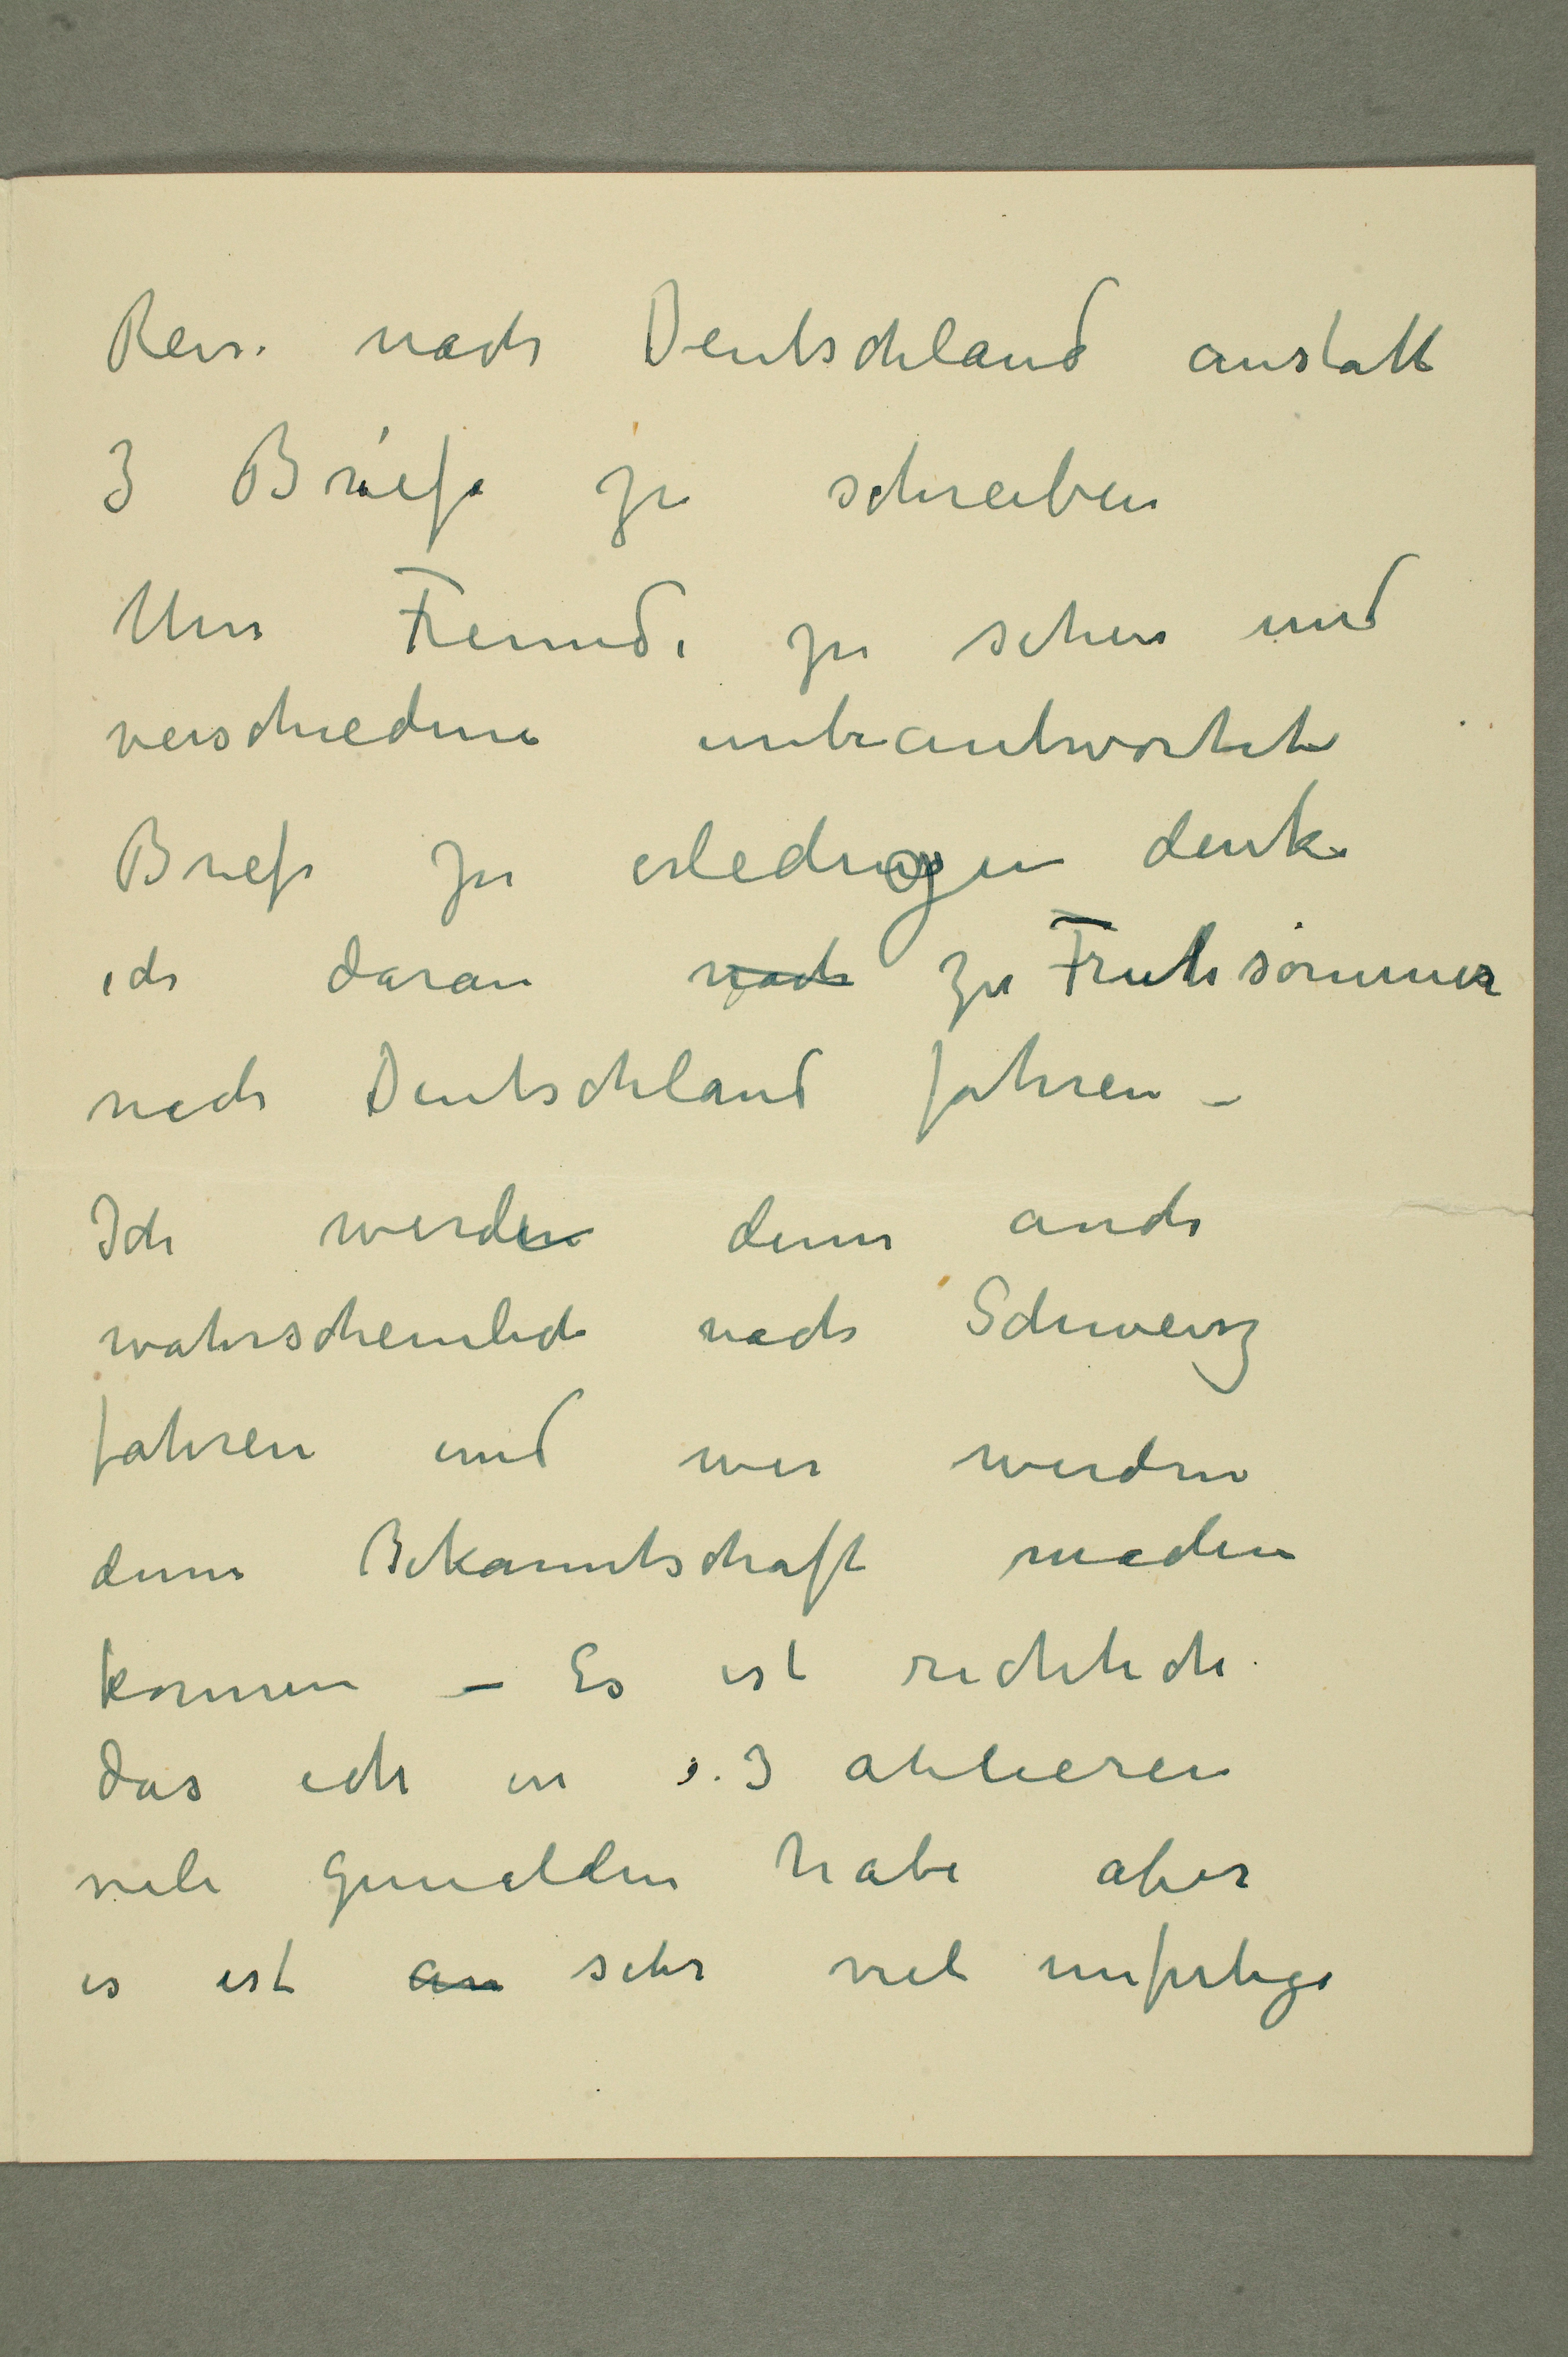 Reise nach Deutschland anstatt
3 Briefe zu schreiben
Um Freunde zu sehen und
verschiedene unbeantwortete
Briefe zu erledigen denke
ich daran nach zu Fruhsommer
nach Deutschland fahren –
Ich werden denn auch
wahrscheinlich nach Schweiz
fahren und wir werden
denn Bekanntschaft machen
konnen – Es ist richtich
das ich in 3 atelieren
viele Gemelden habe aber
es ist an sehr viel unfertige